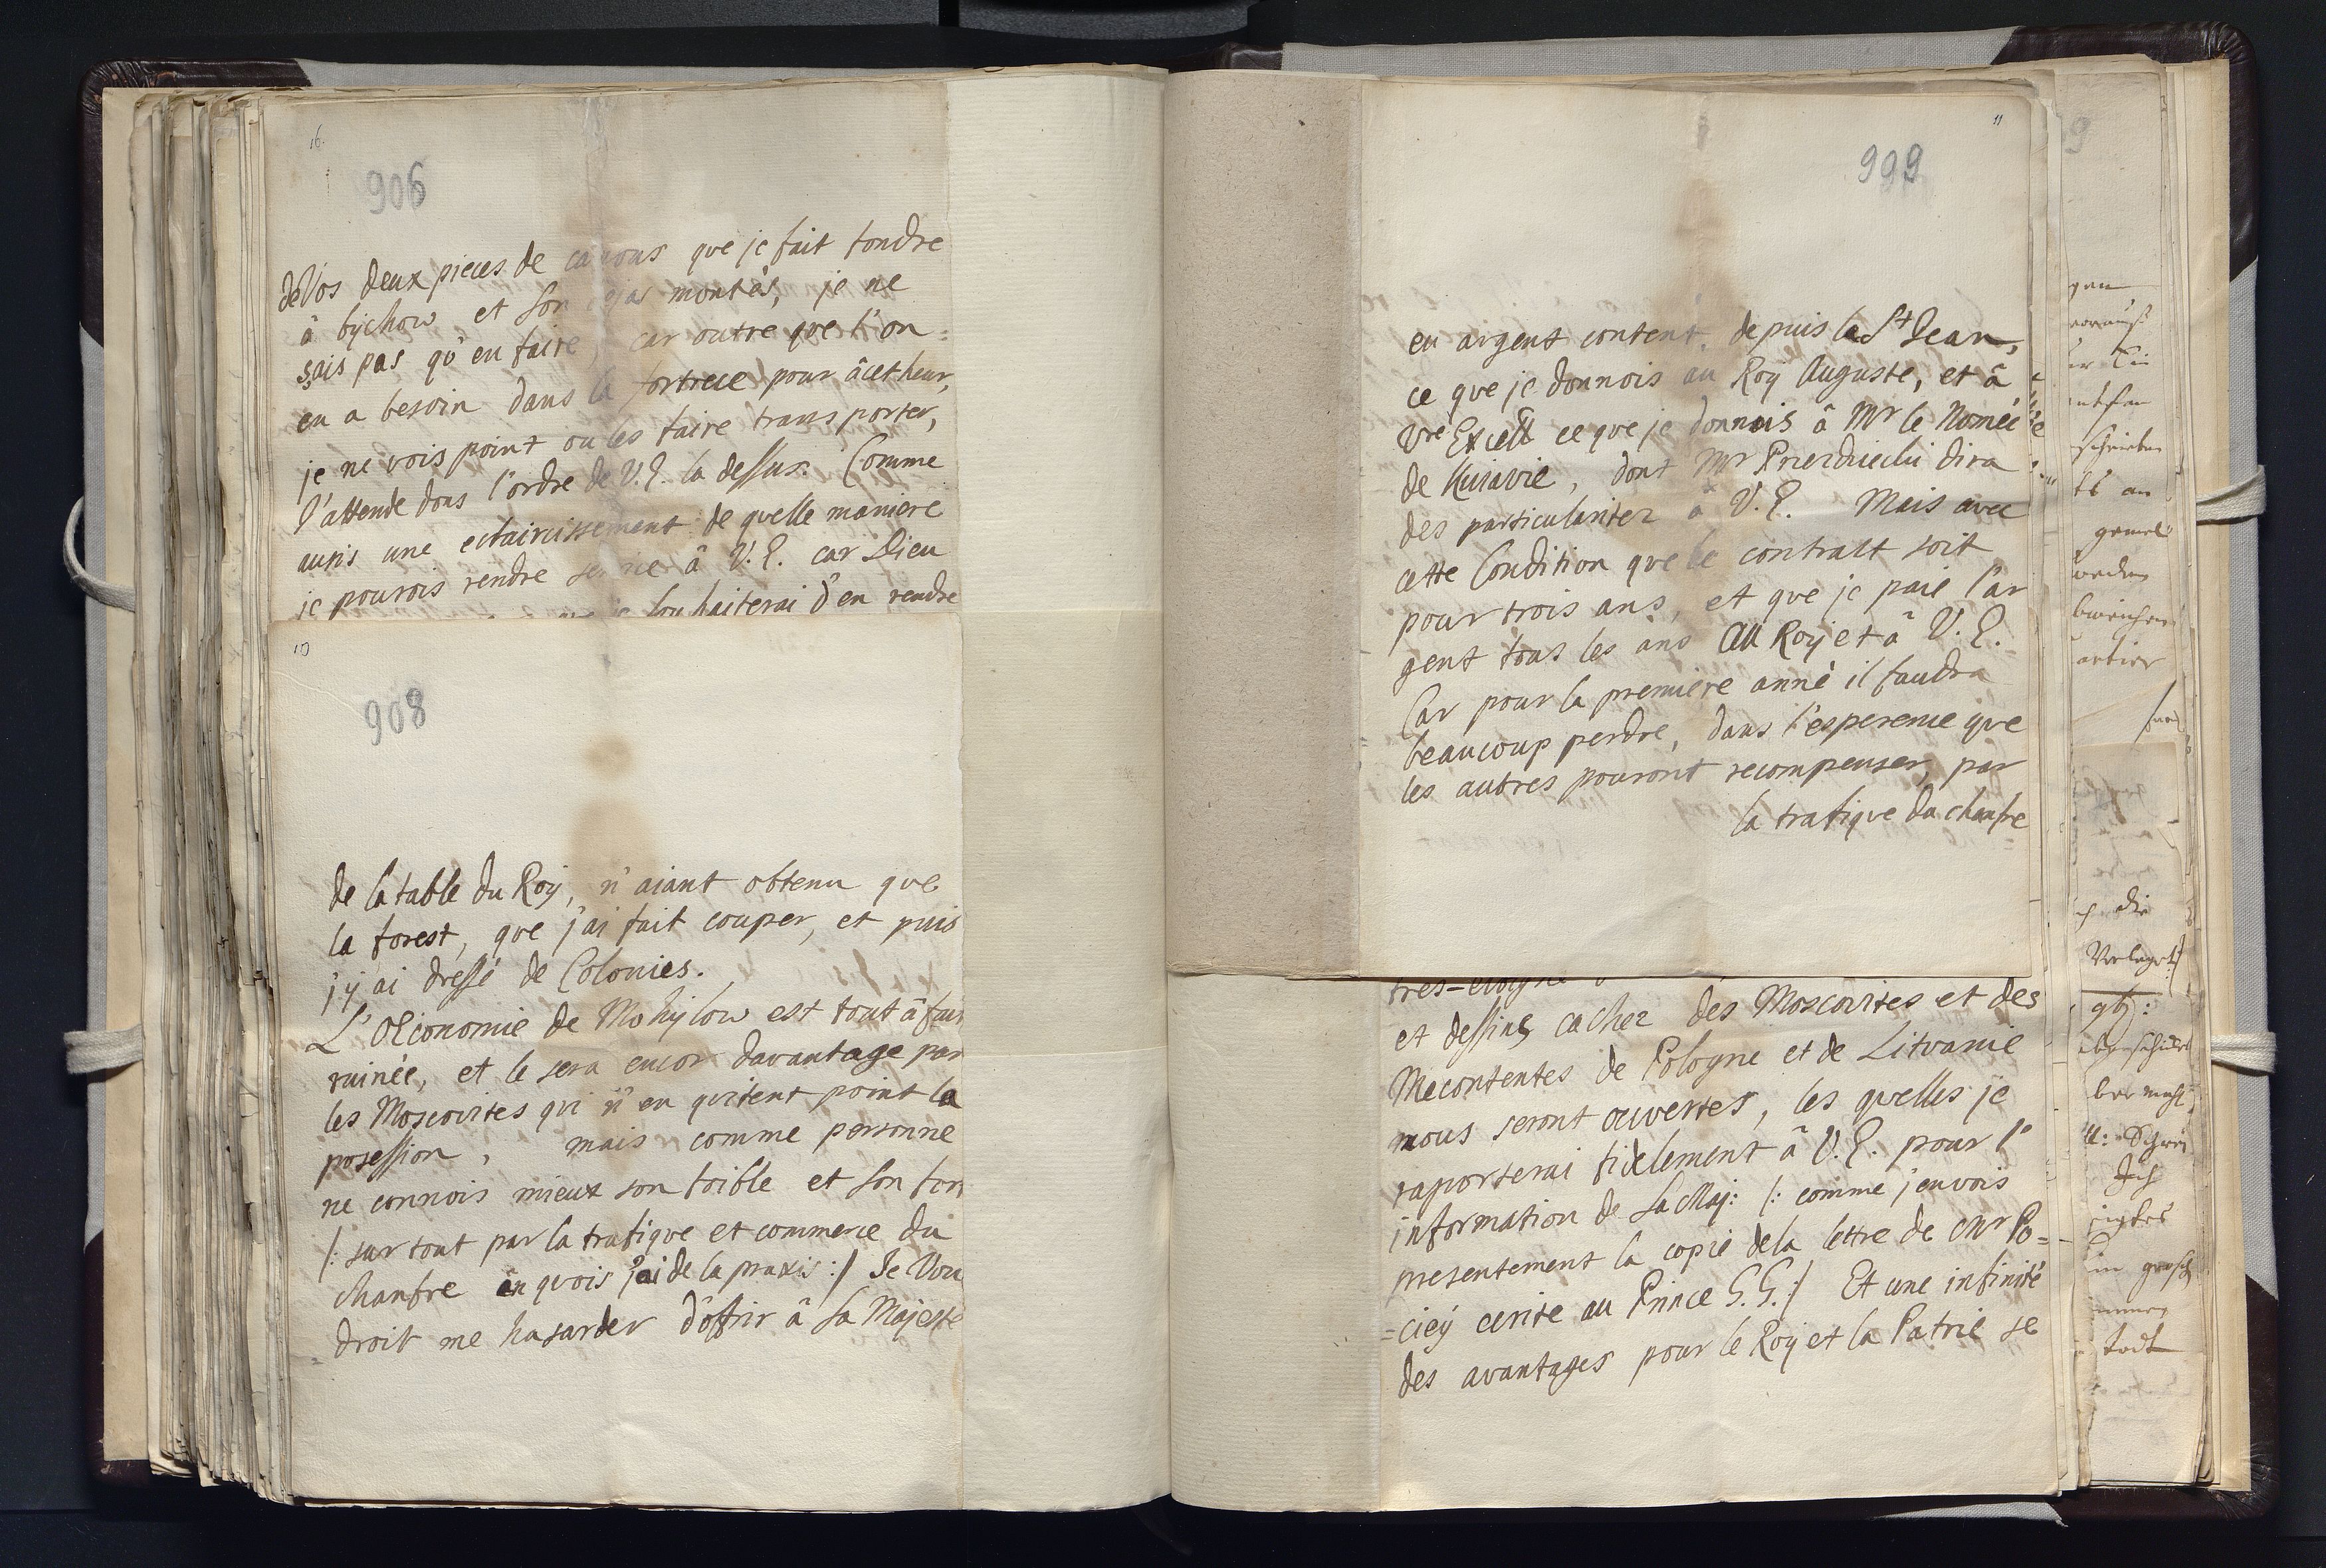 16.
906
de Vos deux pieces de canons que je fait fondre
â bijchow et son montês, je ne
sais pas qu'en faire, car outre que l'on
en a besoin dans la fortrece pour âcetheur,
je ne vois point ou les faire transporter,
J'attende dons l'ordre de V. E. la dessus. Comme
aussi une eclaircissement de quelle maniere
je pourois rendre service â V. E. car Dieu
souhaiterai d'en rendre
10
908
de la table du Roÿ, n'aiant obtenu que
la forest, que j'ai fait couper, et puis
j'ÿ ai dressé de Colonies.
L'OEconomie de Mohÿlow est tout âfait
ruinée, et le sera encor davantage par
les Moscovites qui n'en quitent point la
posession, mais comme personne
ne connois mieux son foible et son fort
/: sur tout par la trafique et commerce du
chanfre en quois j'ai de la praxis :/ Je Vou
droit me hasarder d'offrir â Sa Majesté
11
999
en argent content, depuis la St Jean,
ce que je donnois au Roÿ Auguste, et â
Vre Excell ce que je donnois â Mr le Nomée
de Kuiavie, dont Mr dira
des particularitez â V. E. Mais avec
cette Condition que le contract soit
pour trois ans, et que je paie l'ar
gent tous les ans au Roÿ et â V. E.
Car pour la premiere anné il faudra
beaucoup perdre, dans l'esperence que
les autres pouront recompenser, par
la trafique du chanfre
tres-
et dessins cachez des Moscovites et des
Mecontentes de Pologne et de Litvanie
nous seront ouvertes, les quelles je
raporterai fidelement â V. E. pour l'
information de Sa Maj: /: comme j'envois
presentement la copie dela lettre de Mr Po=
=cieÿ ecrite au Prince G. G. :/ Et une infinité
des avantages pour le Roÿ et la Patrie se
9